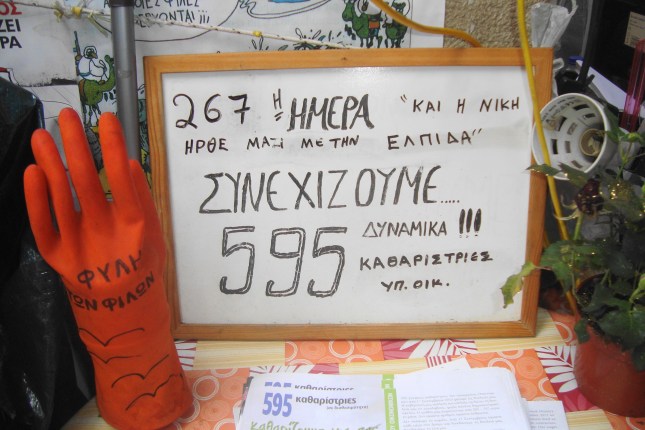 ΟΣ
ΖΕΙ
ΡΑ
ΦΙΛΕΣ
ΕΡΧΟΝΤΑΙ!!!
267 Η ΗΜΕΡΑ "ΚΑΙ Η ΝΙΚΗ
ΗΡΘΕ ΜΑΖΙ ΜΕ ΤΗΝ ΕΛΠΙΔΑ"
ΣΥΝΕΧΙΖΟΥΜΕ.....
595 ΔΥΝΑΜΙΚΑ !!!
ΚΑΘΑΡΙΣΤΡΙΕΣ
ΥΠ. ΟΙΚ.
ΦΥΛΗ
ΤΩΝ ΦΙΛΩΝ
595 καθαρίστριες
595 καθαρίστριες